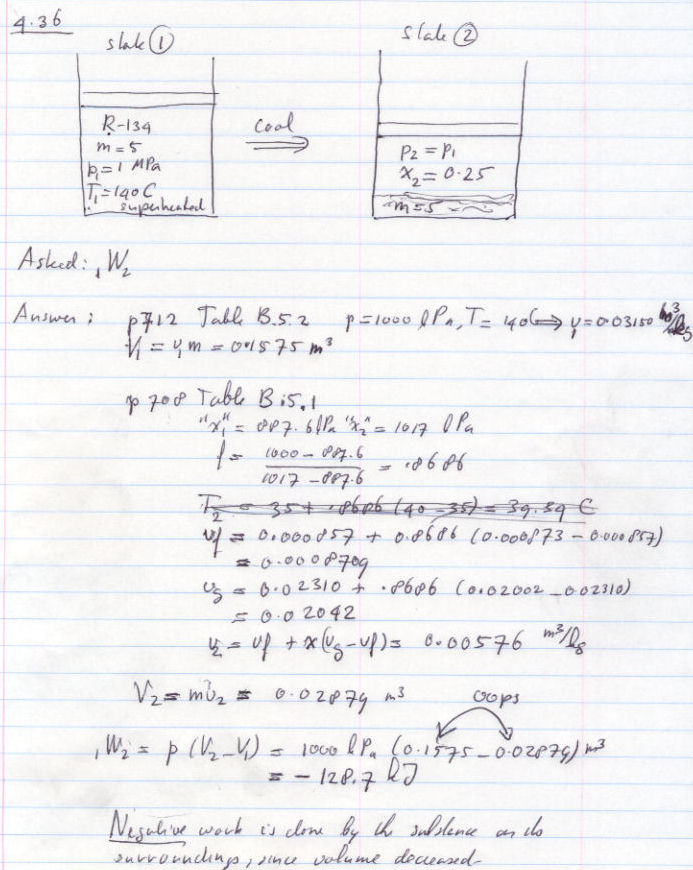 4.36
state ① state ②
R-134
m = 5
p₁ = 1 MPa
T₁ = 140 C
superheated
Cool
P₂ = P₁
x₂ = 0.25
m = 5
Asked: ₁W₂
Answer: p712 Table B.5.2 p = 1000 kPa, T = 140 C ⇒ v₁ = 0.03150 m³/kg
V₁ = v₁ m = 0.1575 m³
p 708 Table B.5.1
"x₁" = 887.6 kPa "x₂" = 1017 kPa
f = (1000 - 887.6)/(1017 - 887.6) = .8686
T₂ = 35 + .8686 (40 - 35) = 39.34 C
vf = 0.000857 + 0.8686 (0.000873 - 0.000857)
= 0.0008709
vg = 0.02310 + .8686 (0.02002 - 0.02310)
= 0.02042
v₂ = vf + x(vg - vf) = 0.00576 m³/kg
V₂ = m v₂ = 0.02879 m³
oops
₁W₂ = p (V₂ - V₁) = 1000 kPa (0.1575 - 0.02879) m³
= - 128.7 kJ
Negative work is done by the substance on its
surroundings, since volume decreased